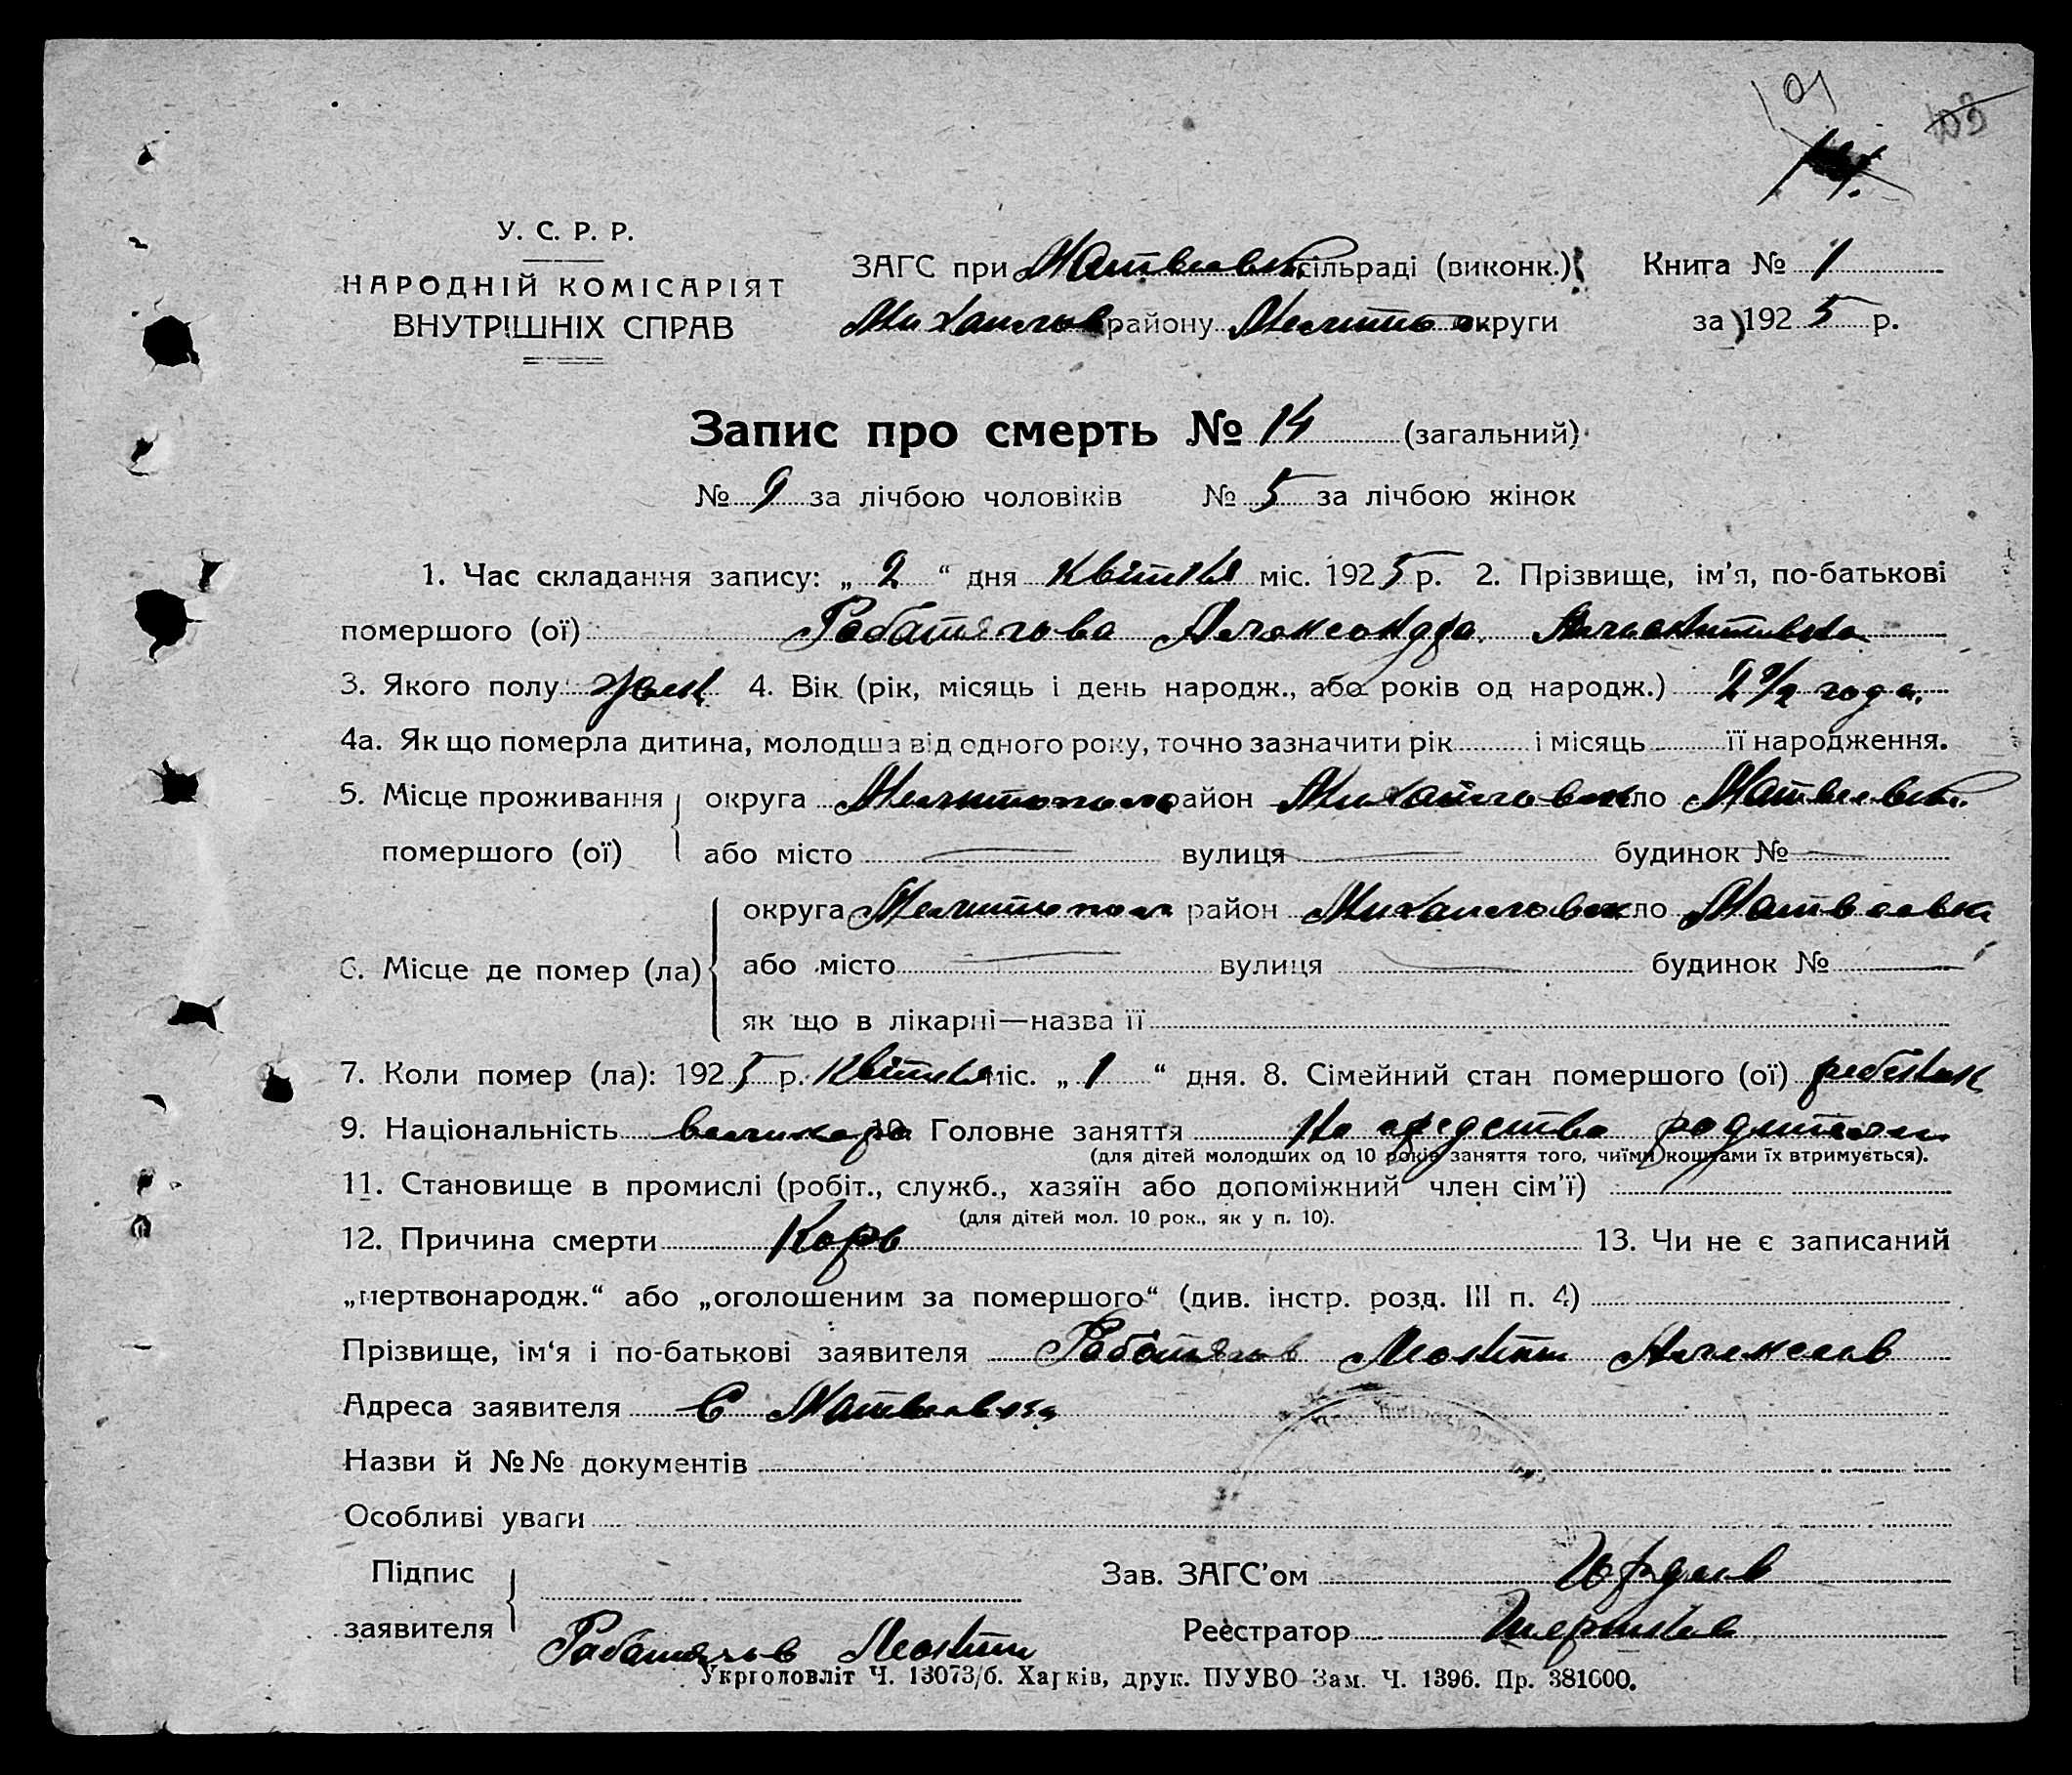 101
103
У. С. Р. Р.
НАРОДНІЙ КОМІСАРІЯТ
ВНУТРІШНІХ СПРАВ
ЗАГС при Матвеевск. сільраді (виконк.)
Михайлов. району Мелитоп округи
Книга № 1
за 1925 р.
Запис про смерть № 14 (загальний)
№ 9 за лічбою чоловіків № 5 за лічбою жінок
1. Час складання запису: „ 2 “ дня Квітня міс. 1925 р. 2. Прізвище, ім’я, по-батькові
помершого (ої) Работягова Александра
3. Якого полу жен. 4. Вік (рік, місяць і день народж., або років од народж.) года.
4а. Як що померла дитина, молодша від одного року, точно зазначити рік і місяць її народження.
5. Місце проживання помершого (ої)
округа Мелитополь район Михайловск село Матвеевк.
або місто вулиця будинок №
6. Місце де помер (ла)
округа Мелитопол район Михайловск село Матвеевка
або місто вулиця будинок №
як що в лікарні—назва її
7. Коли помер (ла): 1925 р. Квітня міс. „ 1 “ дня. 8. Сімейний стан помершого (ої) ребенок
9. Національність великоро 10. Головне заняття На средства родители
(для дітей молодших од 10 років заняття того, чиїми коштами їх втримується).
11. Становище в промислі (робіт., служб., хазяїн або допоміжний член сім’ї)
(для дітей мол. 10 рок., як у п. 10).
12. Причина смерти Корь 13. Чи не є записаний
„мертвонародж.“ або „оголошеним за помершого“ (див. інстр. розд. III п. 4)
Прізвище, ім‘я і по-батькові заявителя Работягов Леонтий Алексеев
Адреса заявителя С Матвеевка
Назви й №№ документів
Особливі уваги
Підпис заявителя
Зав. ЗАГС’ом
Реєстратор
Работягов Леонтий
Укрголовліт Ч. 13073/б. Харків, друк. ПУУВО Зам. Ч. 1396. Пр. 381000.